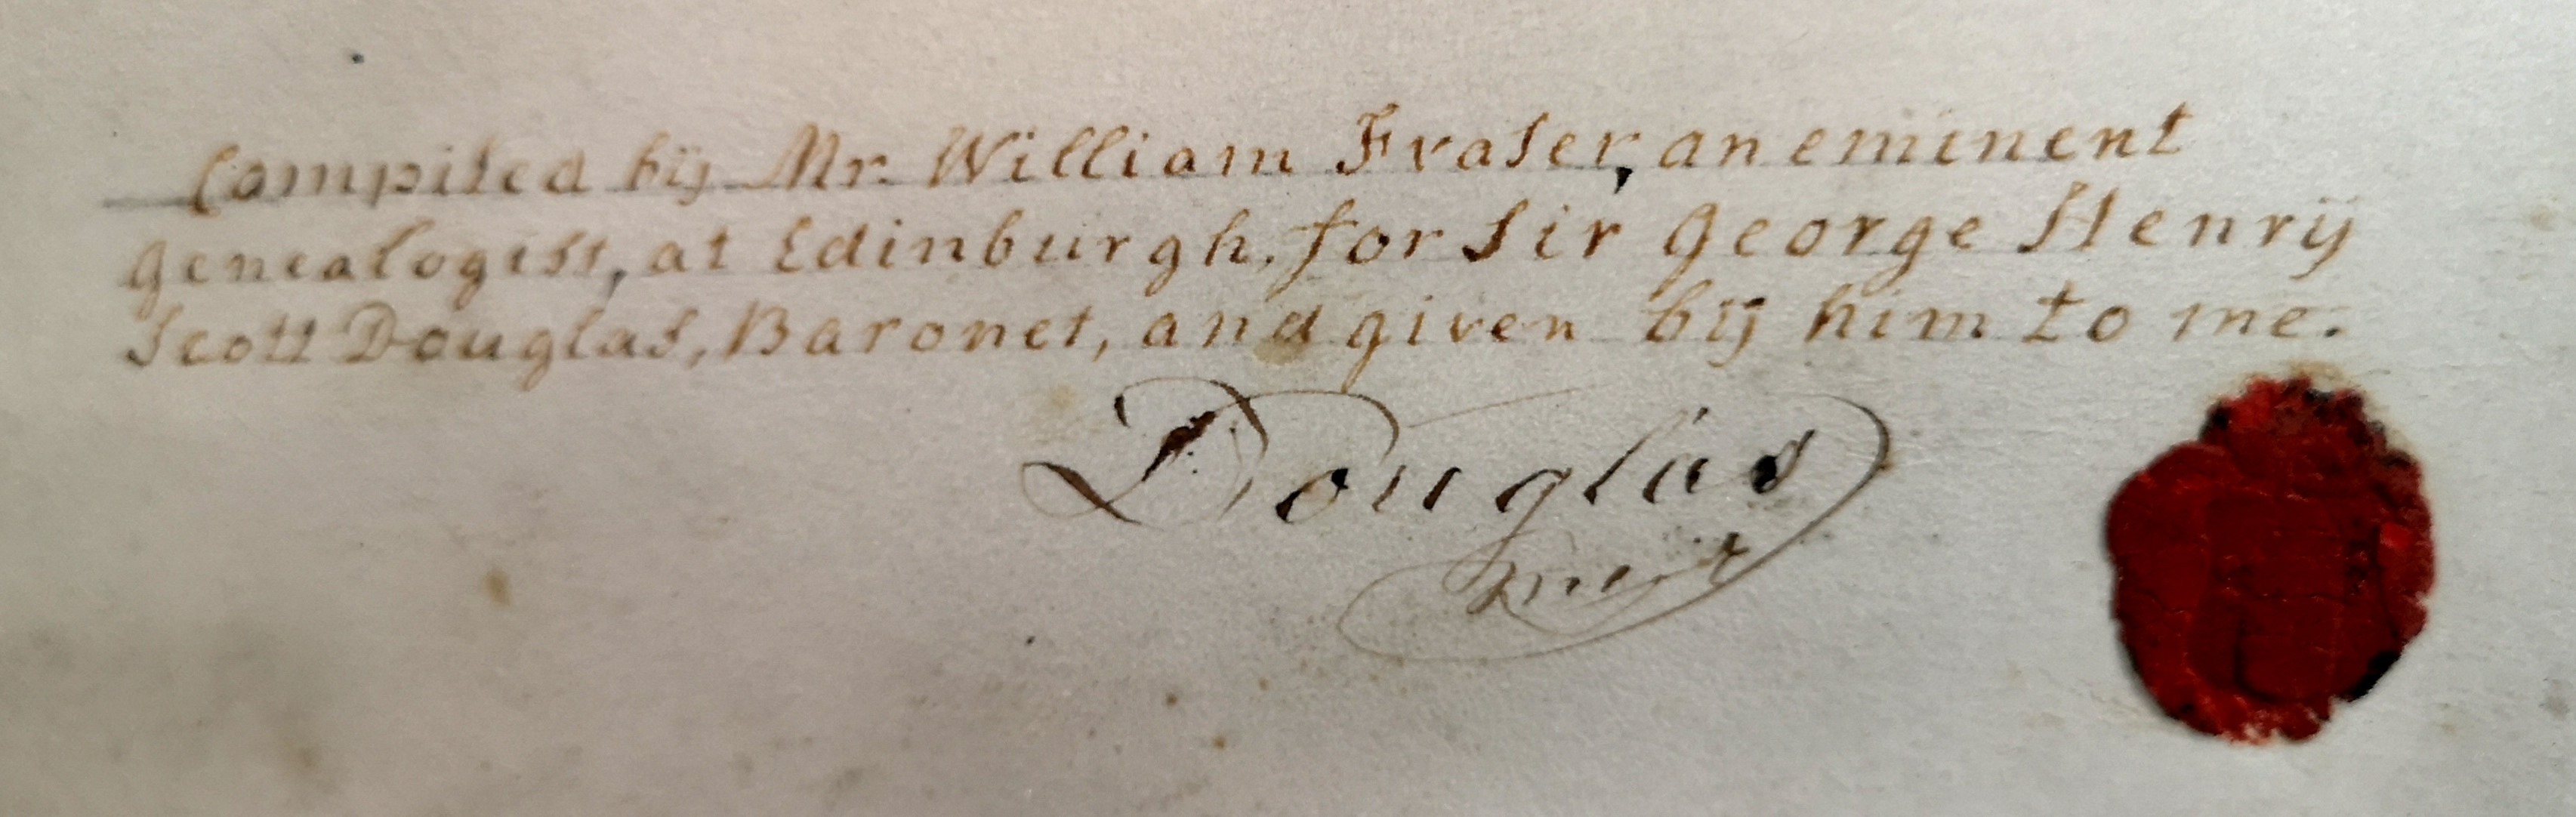 Compiled by Mr. William Fraser, an eminent
Genealogist, at Edinburgh, for Sir George Henry
Scott Douglas, Baronet, and given by him to me.
Douglas